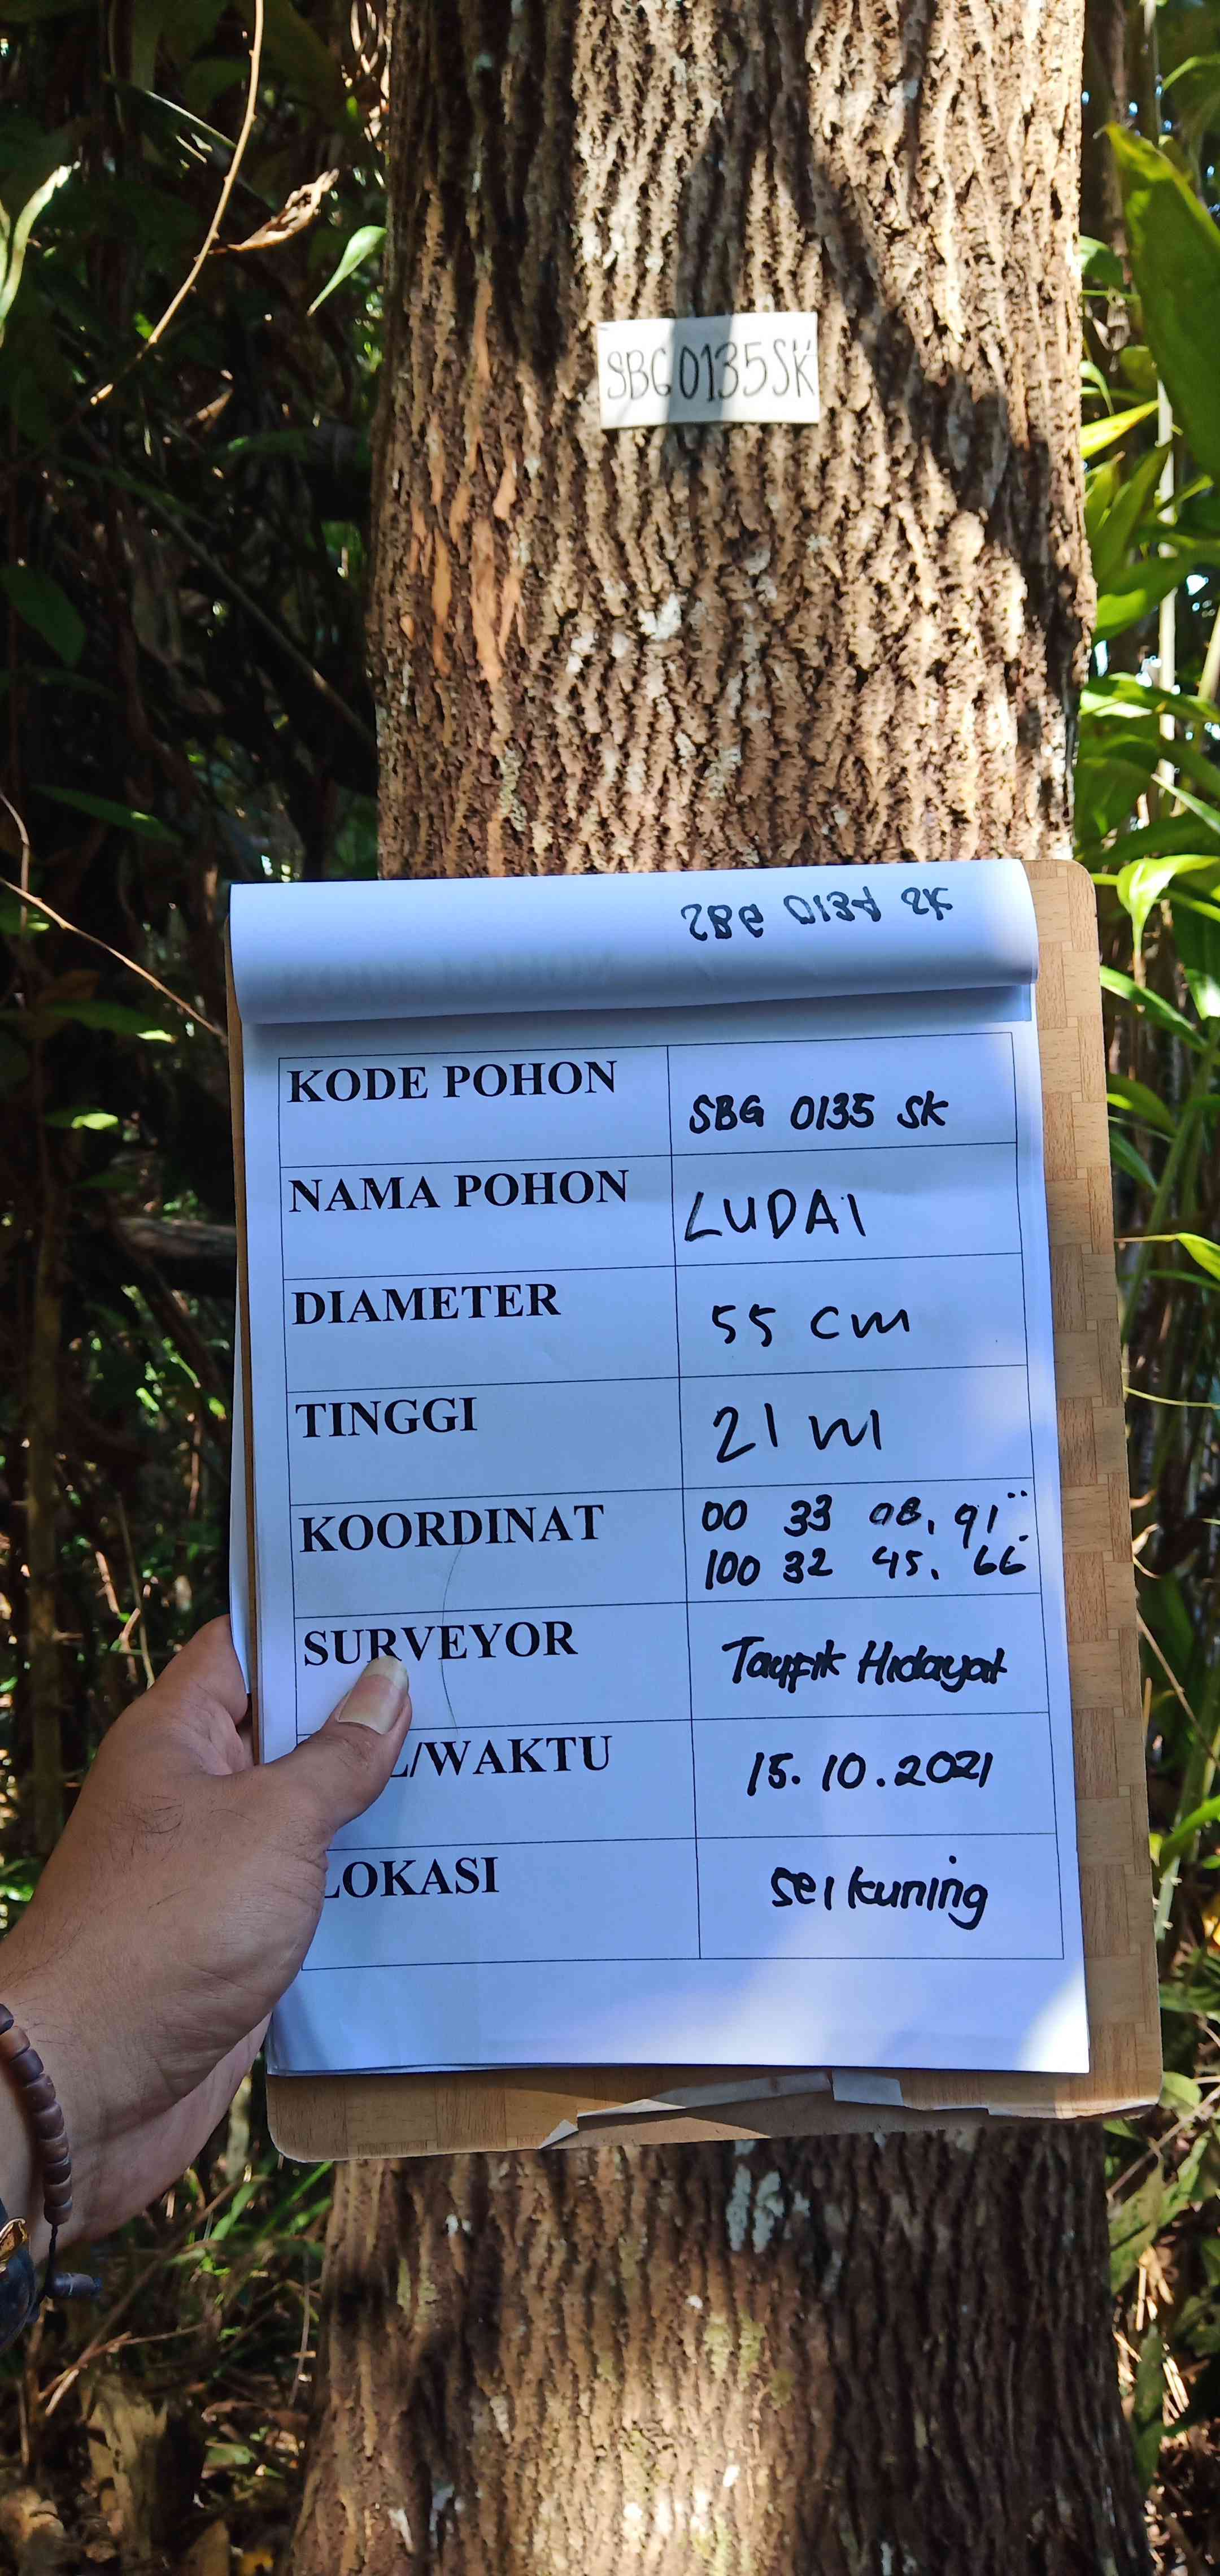 SBG0135SK
SBG 0134 SK
KODE POHON SBG 0135 SK
NAMA POHON LUDAI
DIAMETER 55 cm
TINGGI 21 m
KOORDINAT 00 33 08,91"
100 32 45.66
SURVEYOR Taufik Hidayat
L/WAKTU 15.10.2021
LOKASI sei kuning